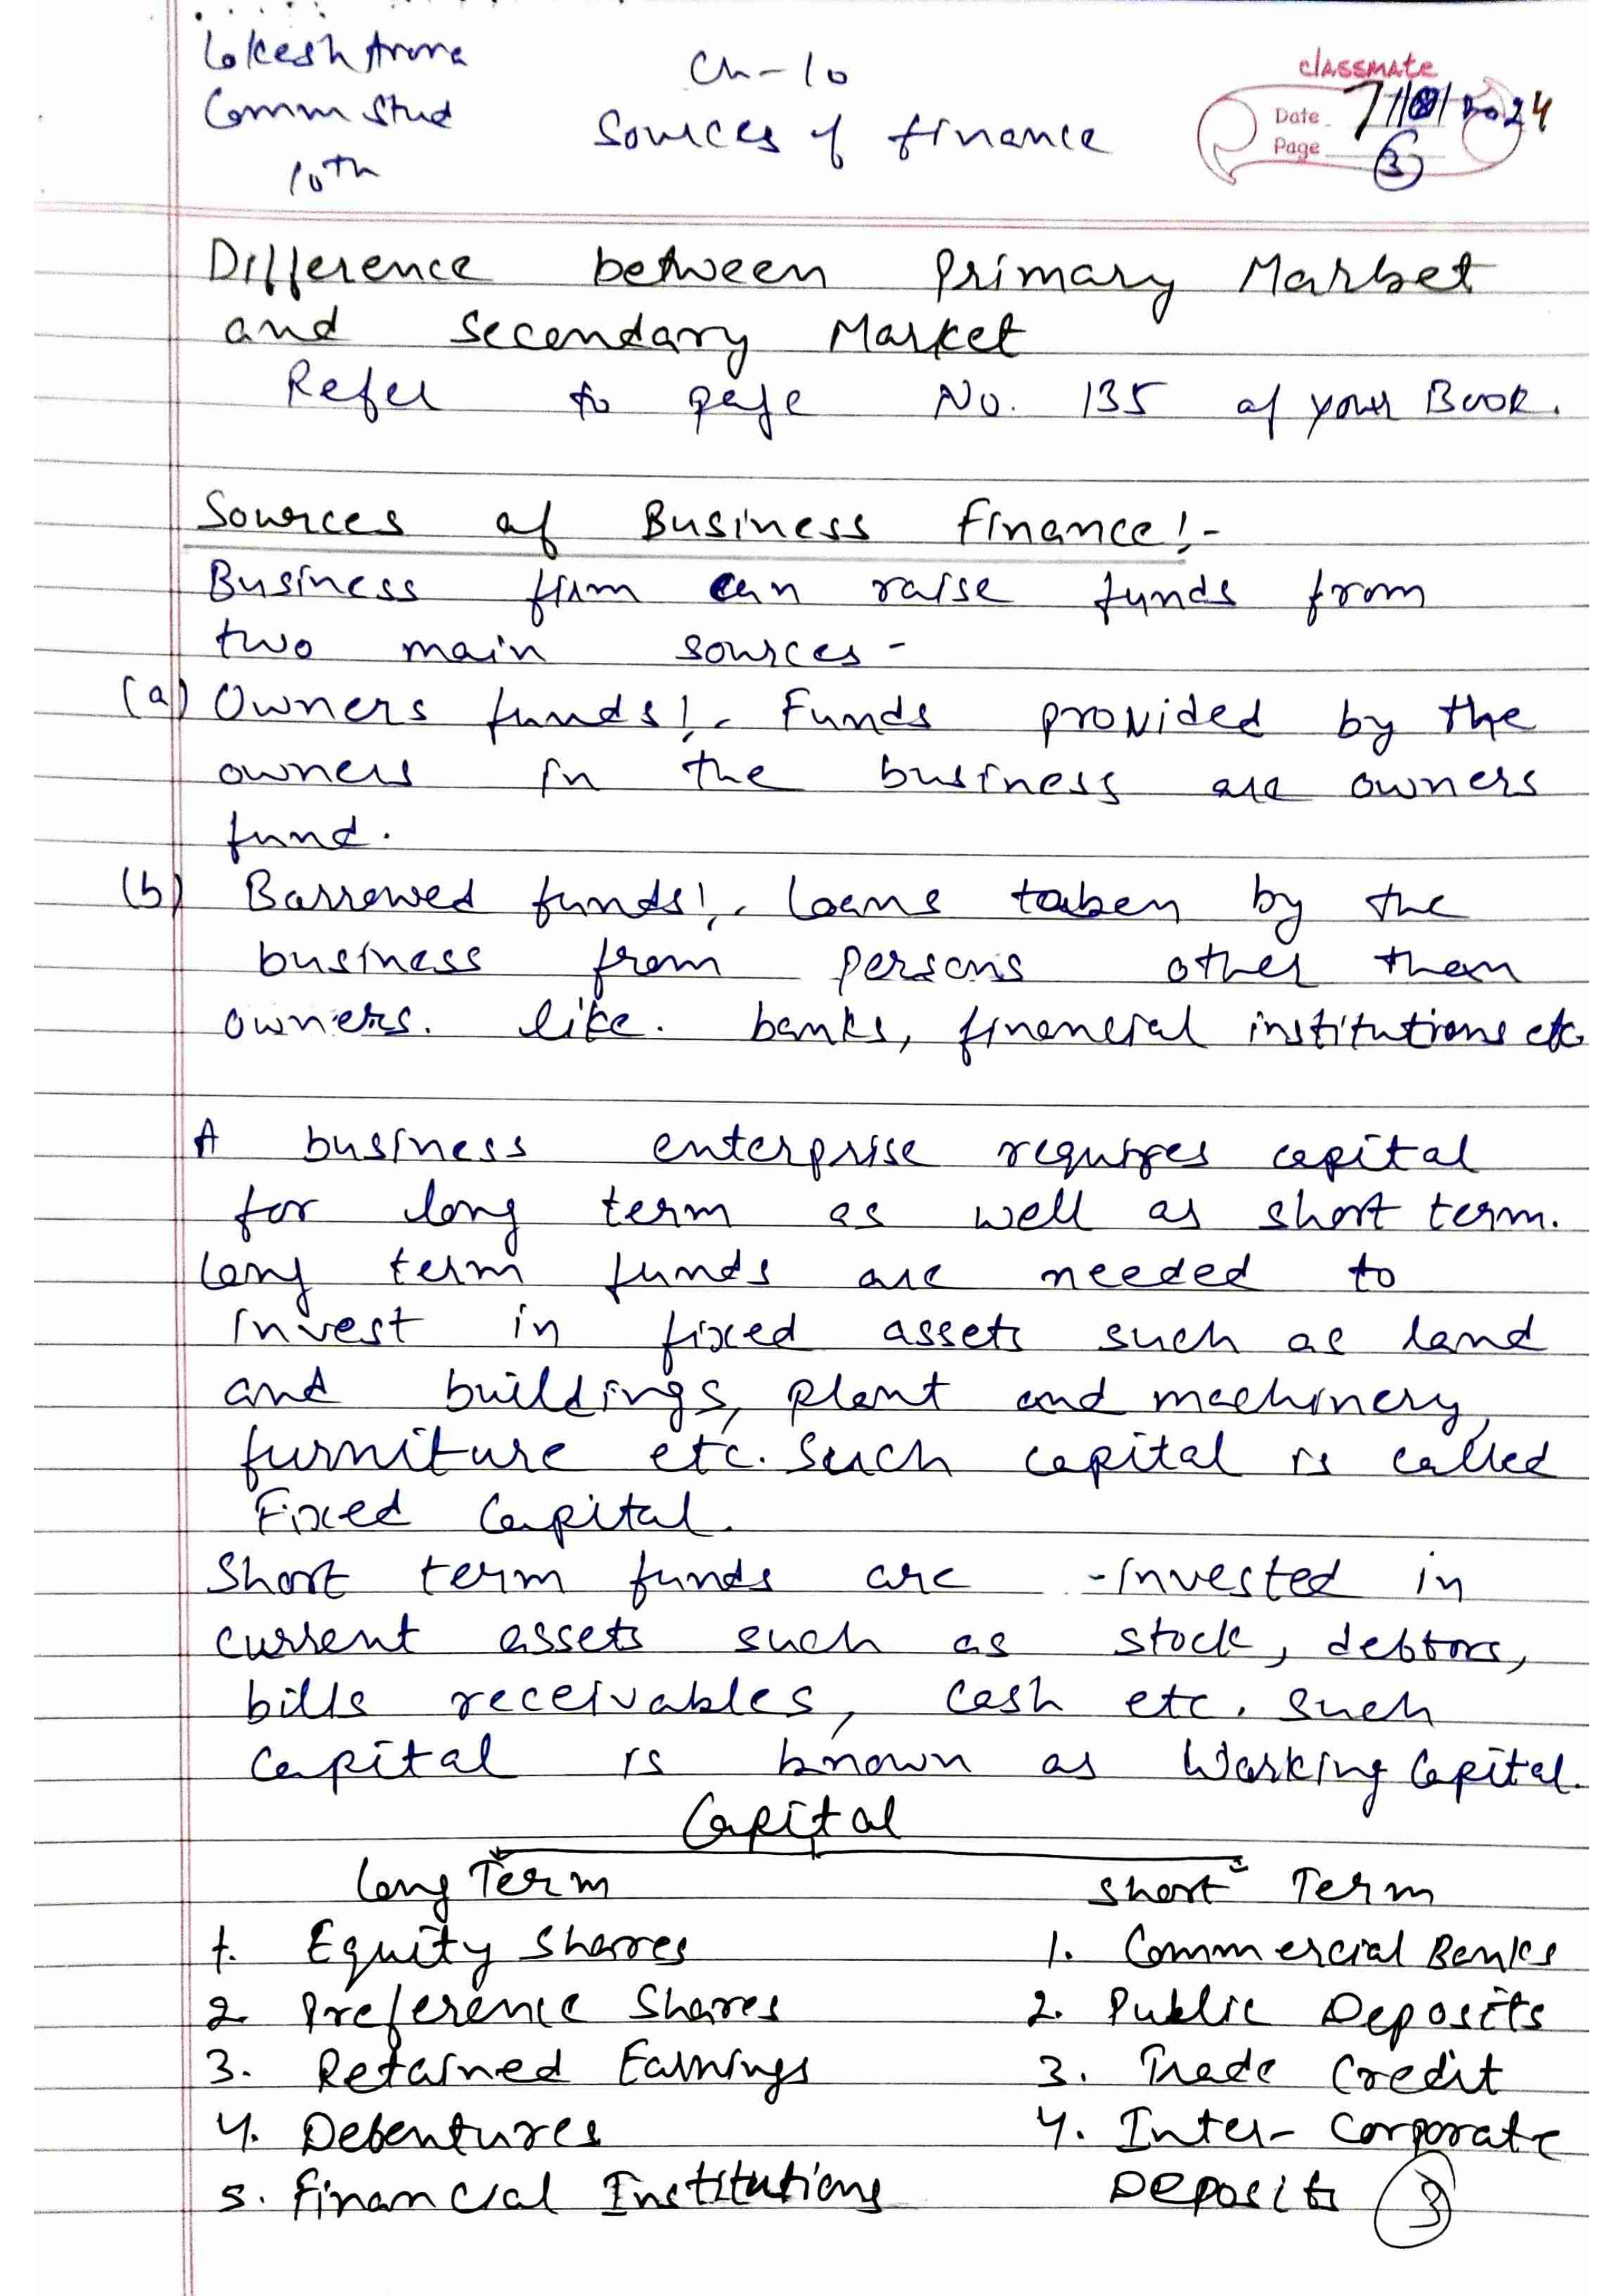 Lokesh Arora
Comm Stud
10th
Ch-10
Sources of finance
classmate
Date 7/8/2024
Page 3
Difference between Primary Market
and Secondary Market
Refer to page No. 135 of your Book.
Sources of Business Finance:-
Business firm can raise funds from
two main sources-
(a) Owners funds:- Funds provided by the
owners in the business are owners
fund.
(b) Borrowed funds:- Loans taken by the
business from persons other than
owners. like. banks, financial institutions etc.
A business enterprise requires capital
for long term as well as short term.
Long term funds are needed to
invest in fixed assets such as land
and buildings, plant and machinery,
furniture etc. Such capital is called
Fixed Capital.
Short term funds are -invested in
current assets such as stock, debtors,
bills receivables, cash etc. Such
capital is known as Working Capital.
Capital
Long Term
1. Equity Shares
2. Preference Shares
3. Retained Earnings
4. Debentures
5. Financial Institutions
Short Term
1. Commercial Banks
2. Public Deposits
3. Trade Credit
4. Inter-Corporate
Deposits
3